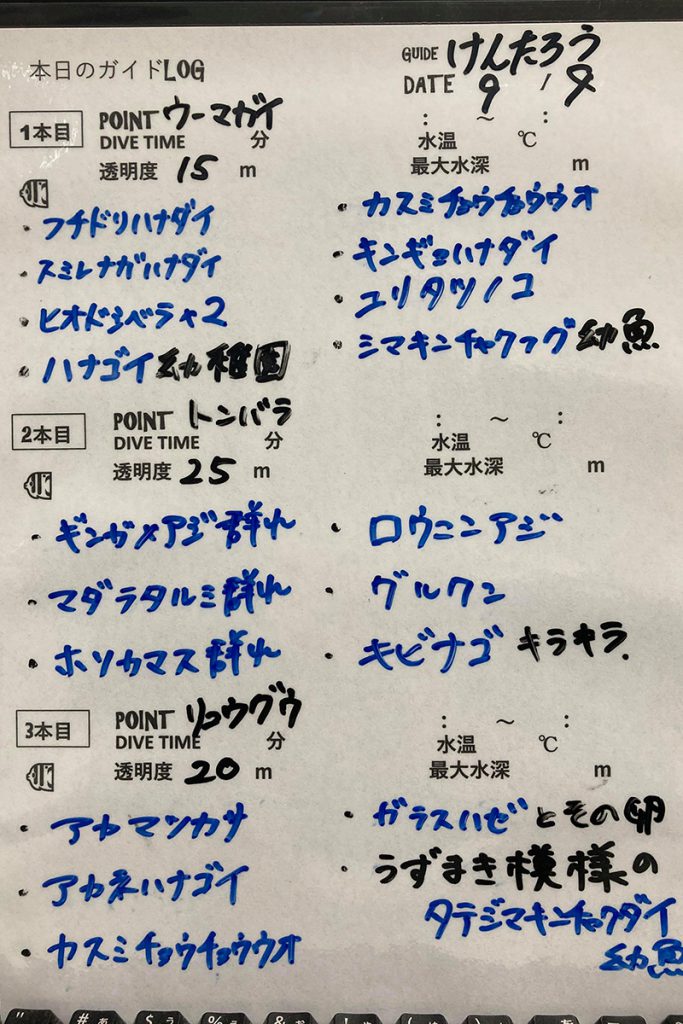 本日のガイドLOG
GUIDE けんたろう
DATE 9 / 9
1本目 POINT ウーマガイ : ～ :
DIVE TIME 分 水温 ℃
透明度 15 m 最大水深 m
・フチドリハナダイ
・スミレナガハナダイ
・ヒオドシベラ×2
・ハナゴイ幼稚園
・カスミチョウチョウウオ
・キンギョハナダイ
・ユリタツノコ
・シマキンチャクフグ幼魚
2本目 POINT トンバラ : ～ :
DIVE TIME 分 水温 ℃
透明度 25 m 最大水深 m
・ギンガメアジ群れ
・マダラタルミ群れ
・ホソカマス群れ
・ロウニンアジ
・グルクン
・キビナゴ キラキラ.
3本目 POINT リュウグウ : ～ :
DIVE TIME 分 水温 ℃
透明度 20 m 最大水深 m
・アカマツカサ
・アカネハナゴイ
・カスミチョウチョウウオ
・ガラスハゼとその卵
・うずまき模様の
タテジマキンチャクダイ
幼魚
" # ぁ $ ぅ % ぇ & ぉ